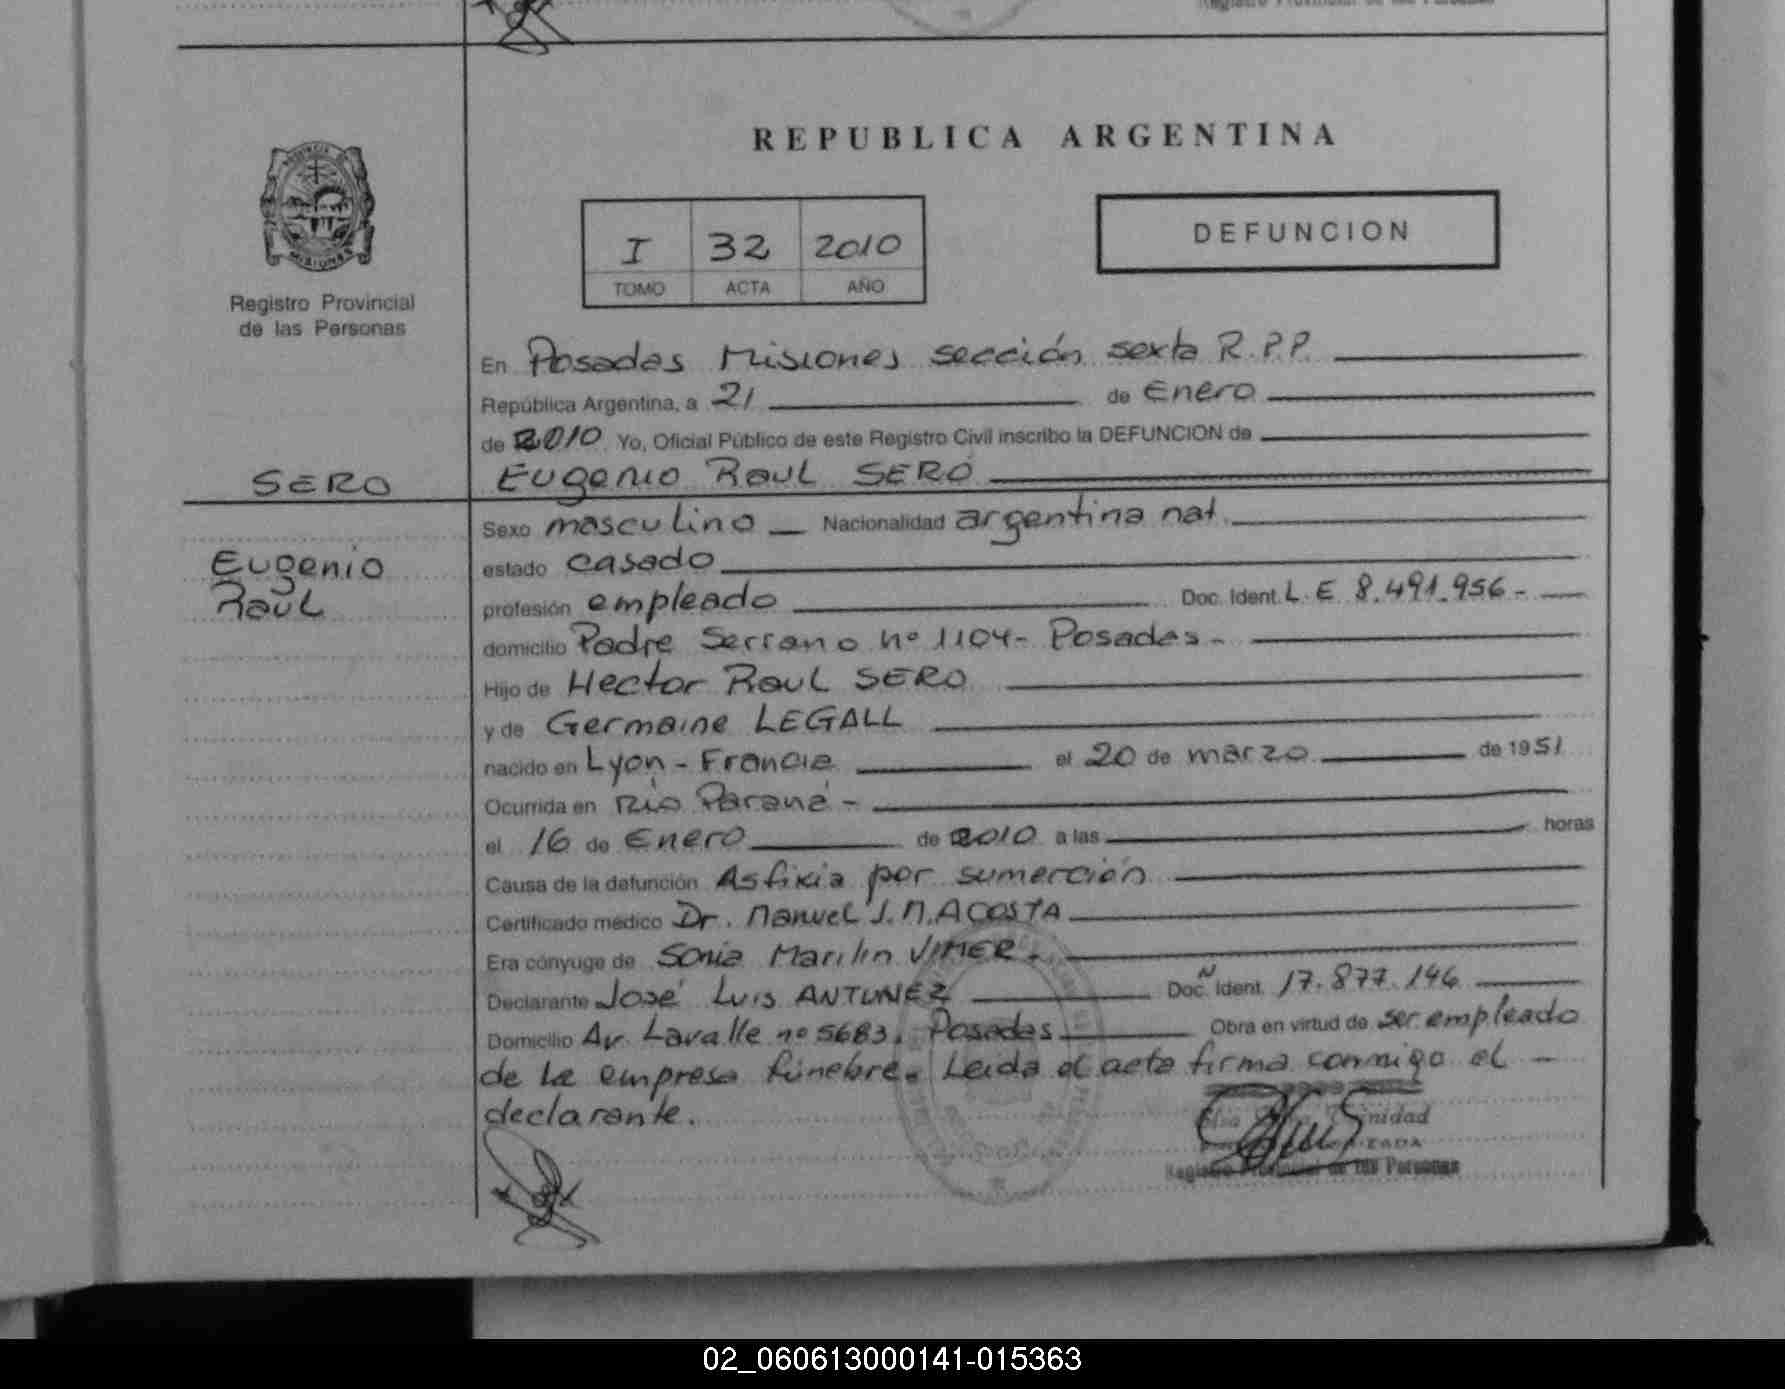 REPUBLICA ARGENTINA
PROVINCIA DE
MISIONES
Registro Provincial
de las Personas
I 32 2010
TOMO ACTA AÑO
DEFUNCION
En Posadas Misiones sección sexta R.P.P.
República Argentina, a 21 de Enero
de 2010 Yo, Oficial Público de este Registro Civil inscribo la DEFUNCION de
Eugenio Raul SERO
SERO
Eugenio
Raul
Sexo masculino Nacionalidad argentina nat.
estado casado
profesión empleado Doc. Ident. L.E 8.491.956-
domicilio Padre Serrano nº 1104- Posadas-
Hijo de Hector Raul SERO
y de Germaine LEGALL
nacido en Lyon - Francia el 20 de marzo de 1951
Ocurrida en Río Paraná -
el 16 de Enero de 2010 a las horas
Causa de la defunción Asfixia por sumerción
Certificado médico Dr. Manuel J.M.ACOSTA
Era cónyuge de Sonia Marilin VIMER.
Declarante José Luis ANTUNEZ Doc. Ident. 17.877.146
Domicilio Av. Lavalle nº 5683. Posadas Obra en virtud de ser empleado
de la empresa fúnebre. Leida el acta firma conmigo el -
declarante.
Registro Provincial de las Personas
02_060613000141-015363